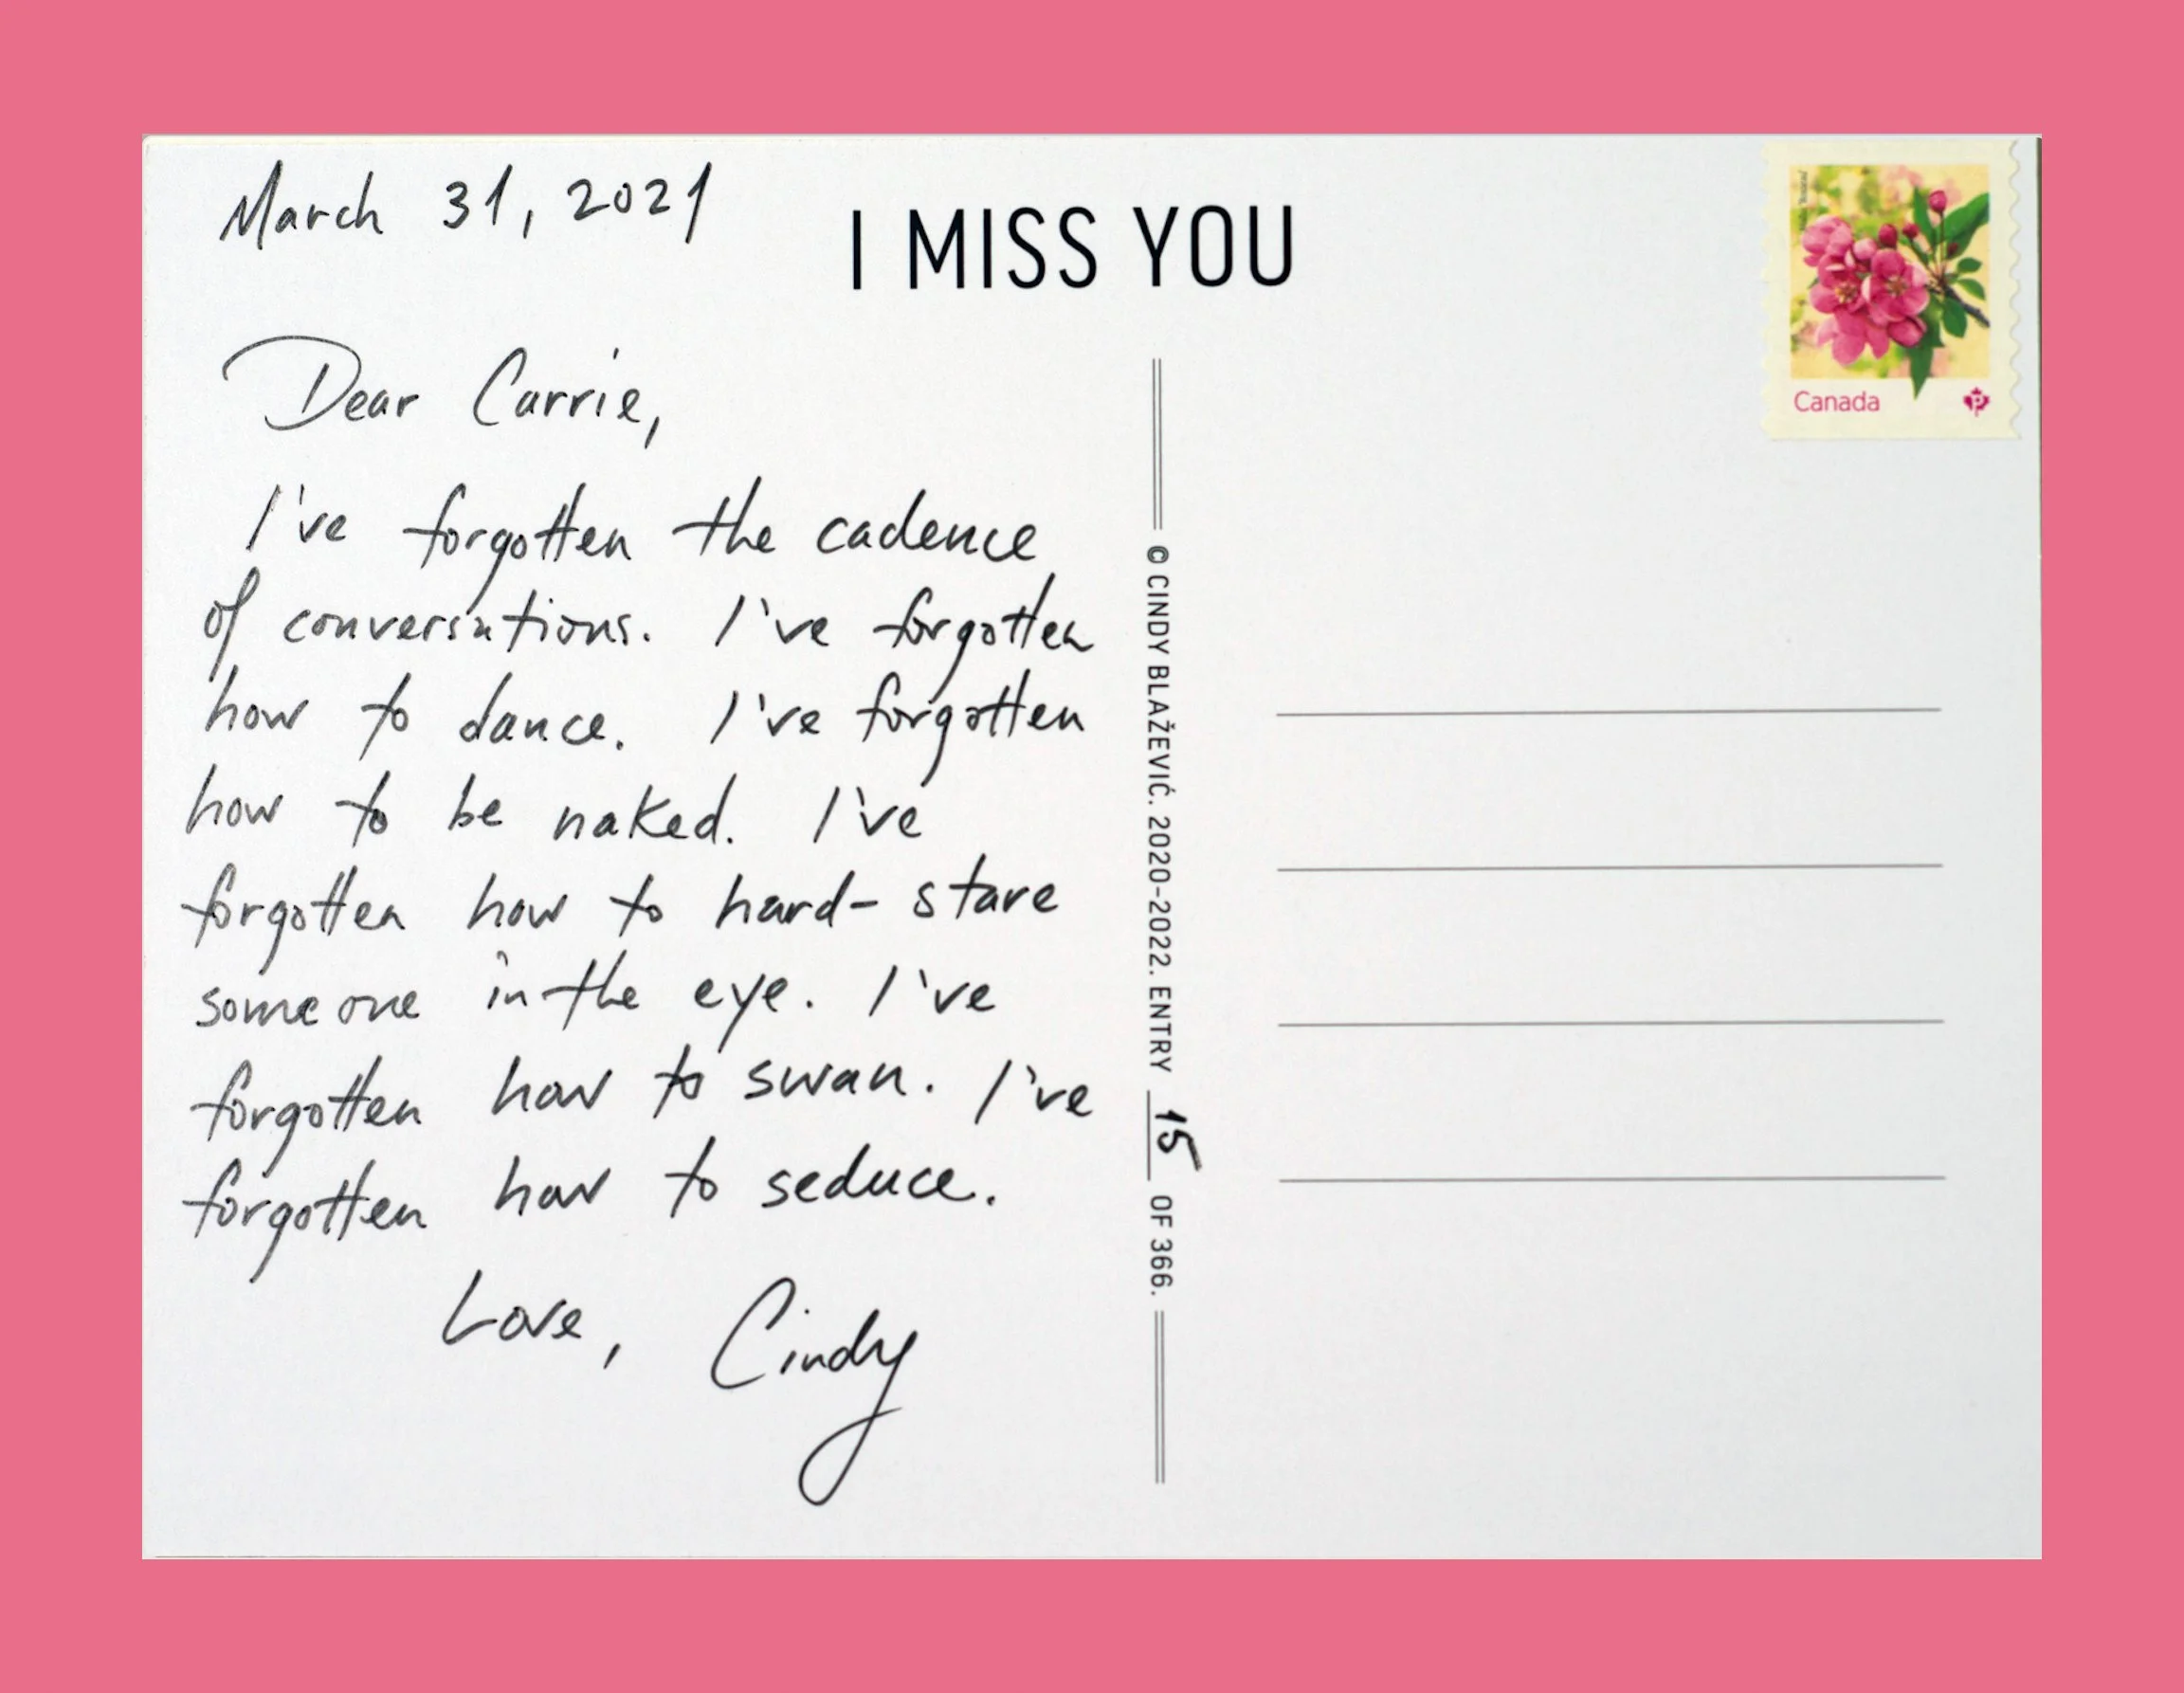 March 31, 2021
I MISS YOU
Dear Carrie,
I've forgotten the cadence
of conversations. I've forgotten
how to dance. I've forgotten
how to be naked. I've
forgotten how to hard-stare
someone in the eye. I've
forgotten how to swan. I've
forgotten how to seduce.
Love, Cindy
© CINDY BLAŽEVIĆ. 2020-2022. ENTRY 15 OF 366.
Canada
P